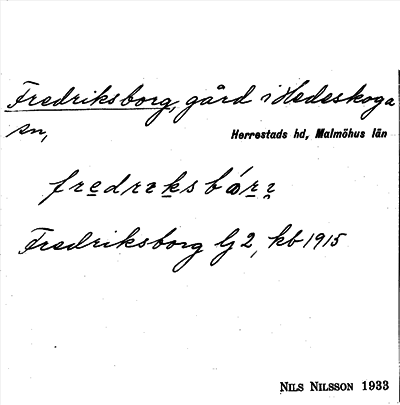 Fredriksborg, gård i Hedeskoga
sn,
Herrestads hd, Malmöhus län
Fredriksborg lj 2, kb 1915
NILS NILSSON 1933